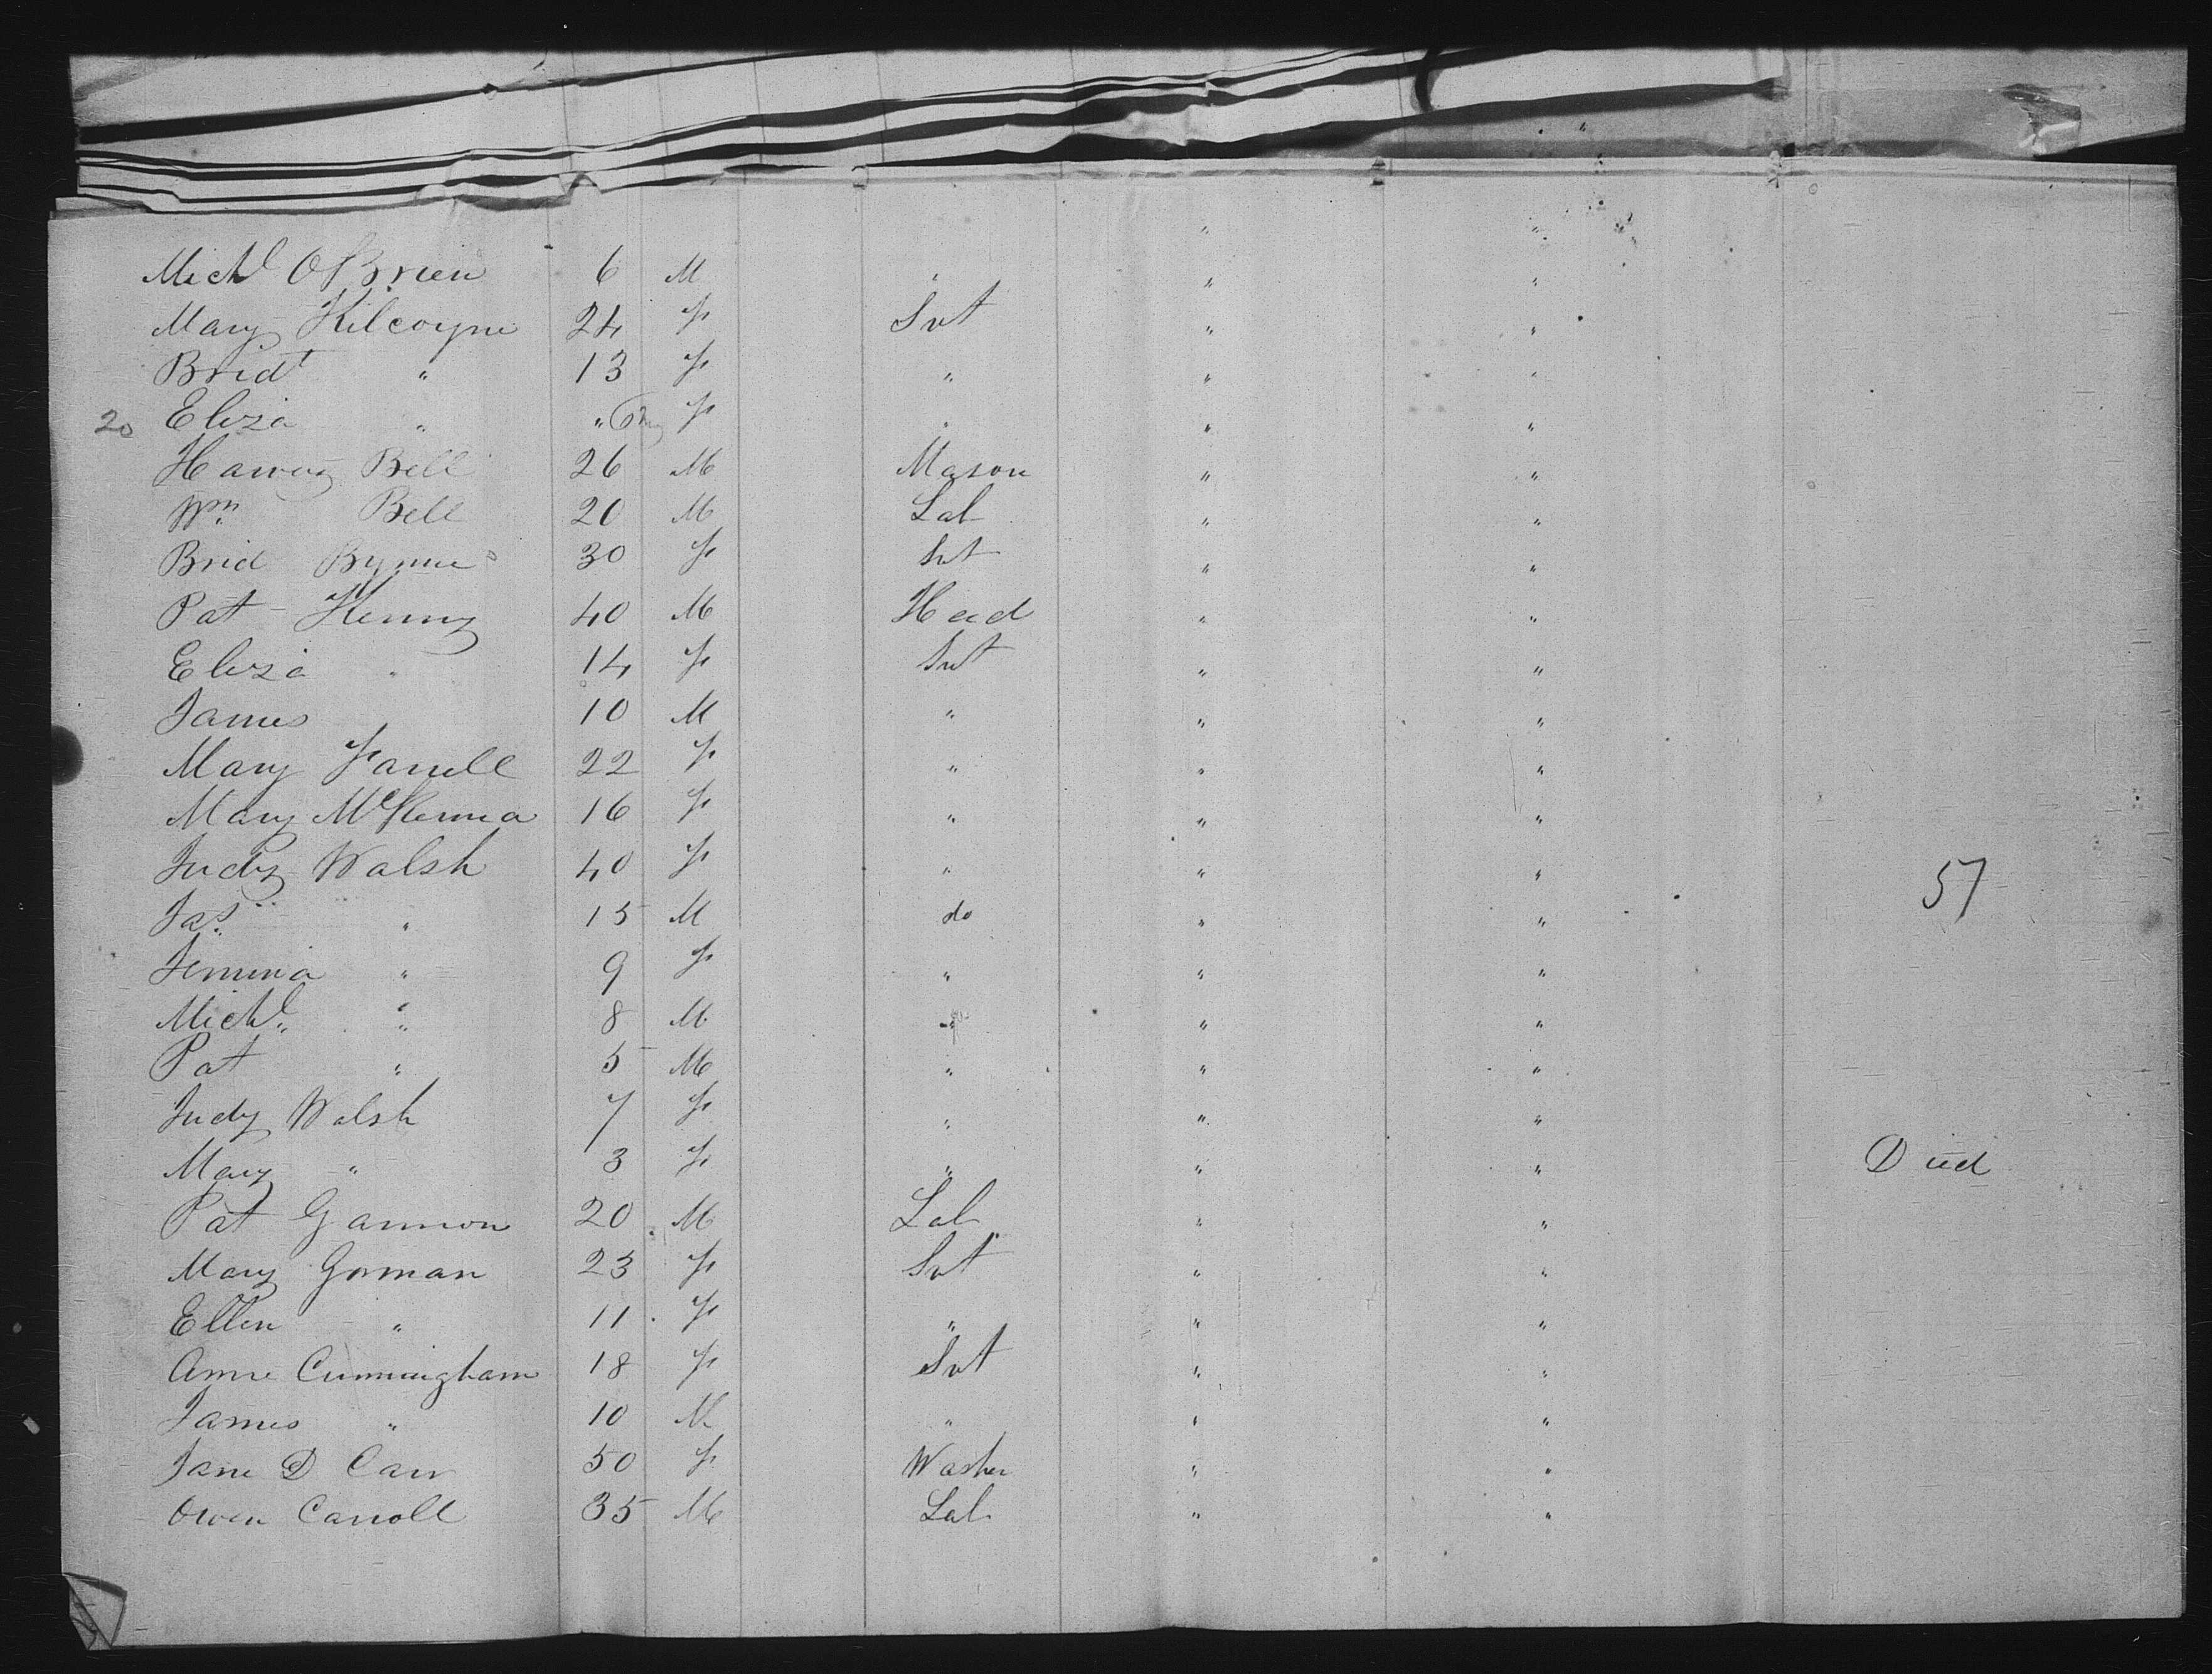 " "
Michl OBrien 6 M " " "
Mary Kilcoyne 24 F Svt " "
Bridt " 13 F " " "
20 Eliza " " F " " "
Harvey Bell 26 M Mason " "
Wm Bell 20 M Lab " "
Brid Byrne 30 F Svt " "
Pat Kenny 40 M Head " "
Eliza " 14 F Svt " "
James 10 M " " "
Mary Farrell 22 F " " "
Mary McKenna 16 F " " "
Judy Walsh 40 F " " " 57
Jas " 15 M do " "
Jemima " 9 F " " "
Michl " 8 M " " "
Pat " 5 M " " "
Judy Walsh 7 F " " "
Mary " 3 F " " " Died
Pat Gannon 20 M Lab " "
Mary Gorman 23 F Svt " "
Ellen " 11 F " " "
Anne Cunningham 18 F Svt " "
James " 10 M " " "
Jane D Carr 50 F Washer " "
Owen Carroll 35 M Lab " "